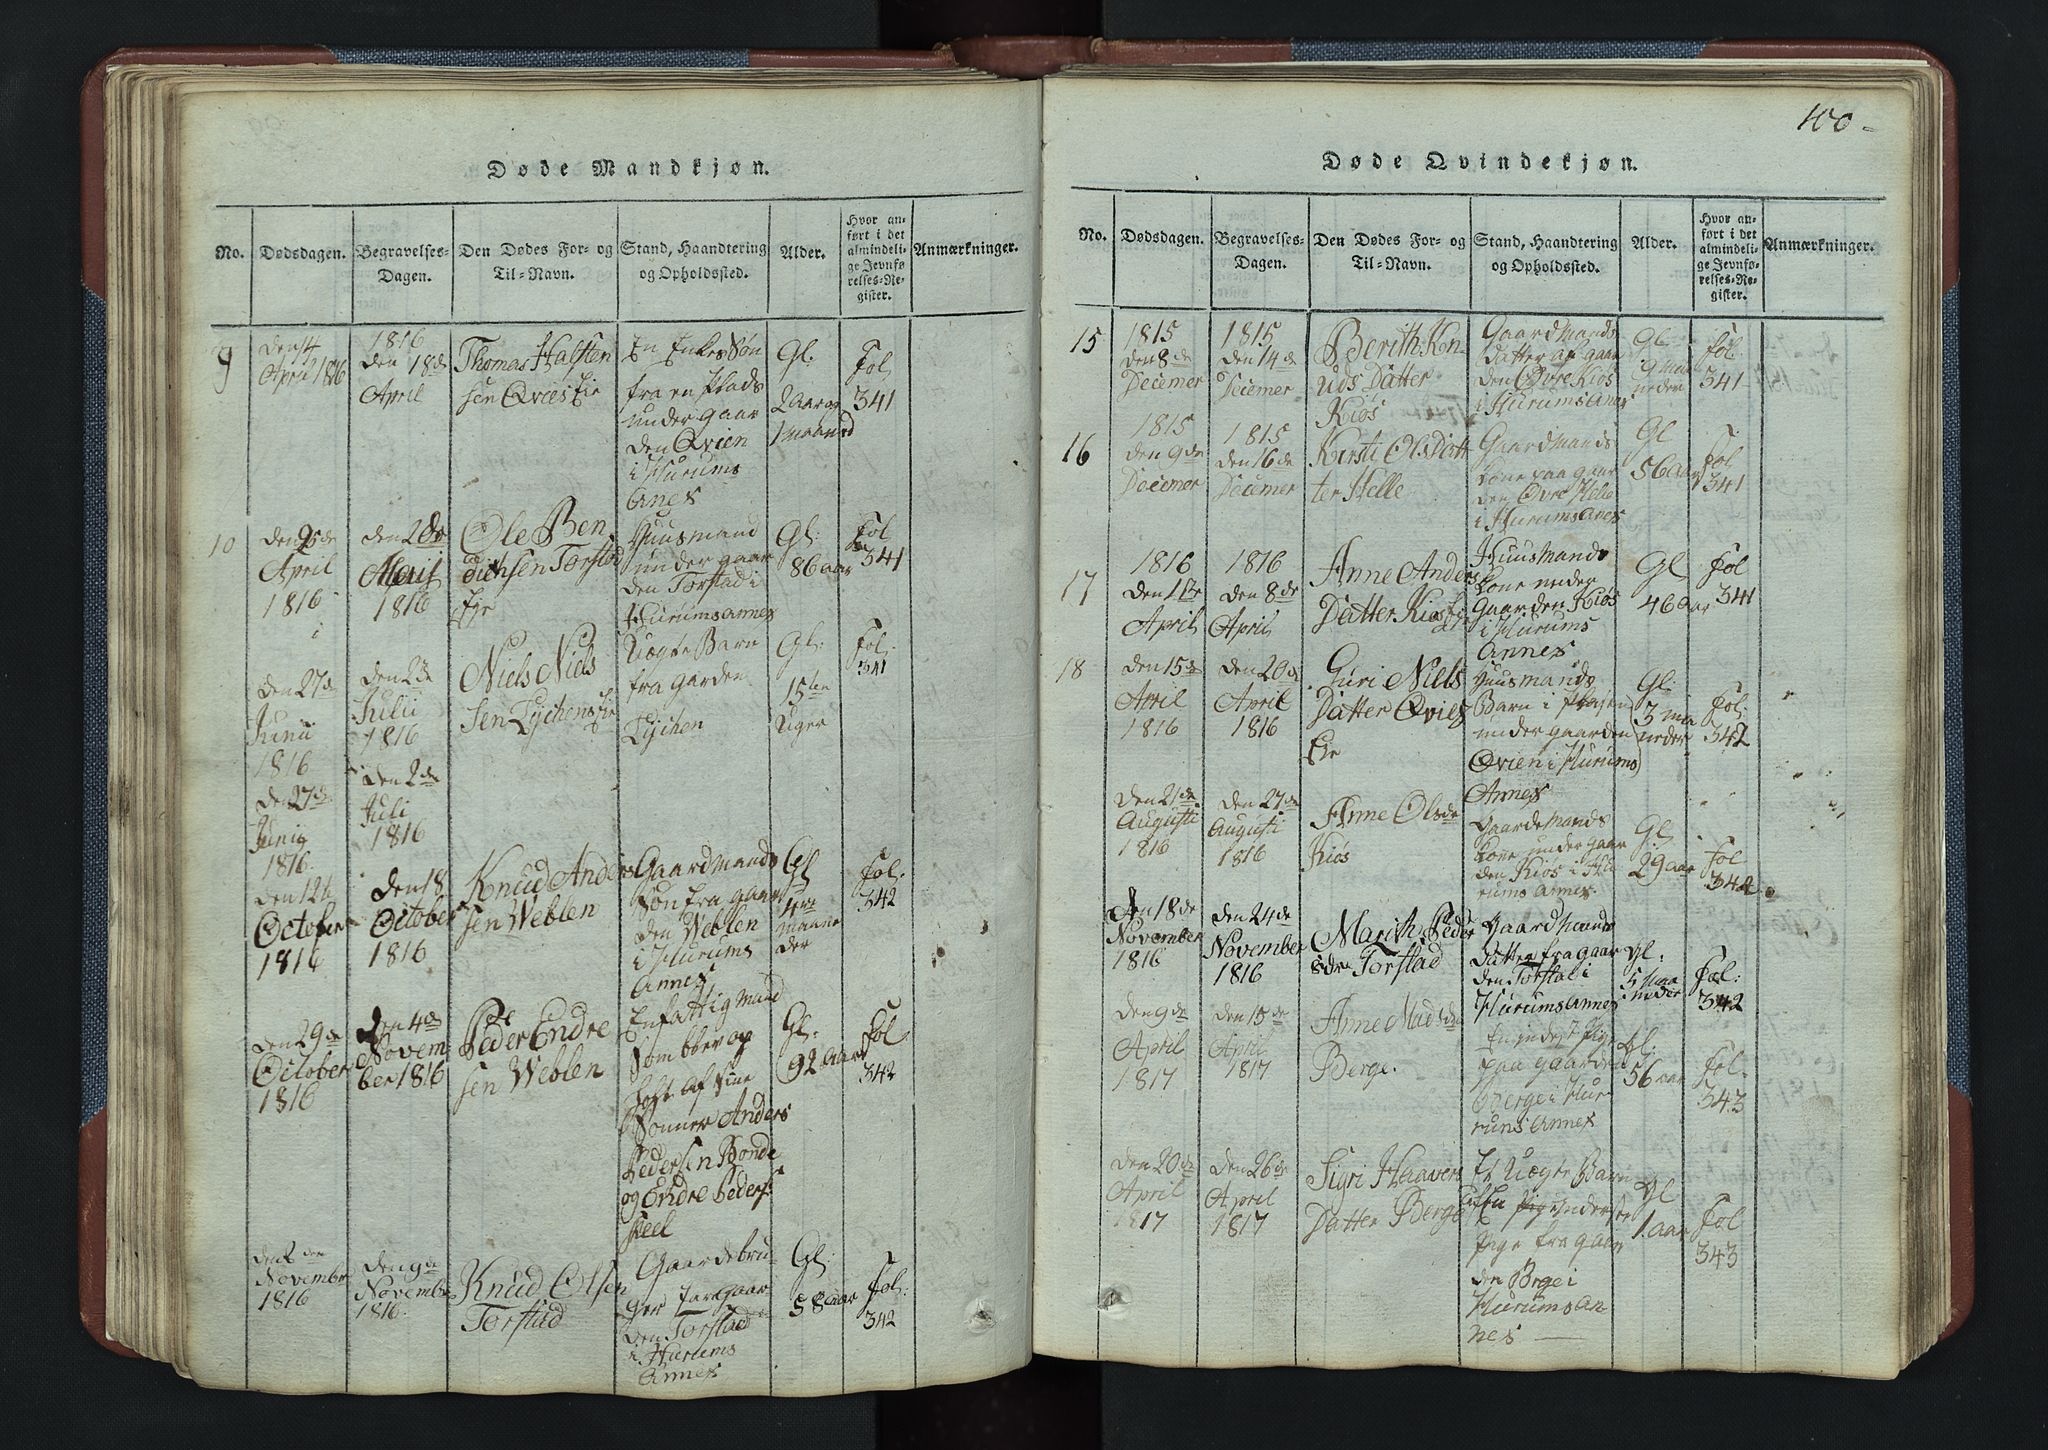 Døde Mandkjøn.
No.
Dødsdagen.
Begravelses-
Dagen.
Den Dødes For- og
Til-Navn.
Stand, Haandtering
og Opholdssted.
Alder.
Hvor an-
ført i det
almindeli-
ge Jevnfø-
relses-Re-
gister.
Anmærkninger.
9
den 14
April 1816
1816
den 18de
April
Thomas Halsten
sen Qviens Eie
En Enkes Søn
fra en Plads
under gaar
den Qvien
i Hurums
Anex
Gl:
2 aar og
1 maaned
Fol
341
10
den 25de
April
1816
den 28de
April
1816
Ole Ben
dichsen Torstad
Eje
Huusmand
under gaar
den Torstad i
Hurums annex
Gl:
86 aar
Fol
341
den 27de
Junii
1816
den 2de
Julii
1816
Niels Niels
sen Tychens Eie
Uægte Barn
fra garden
Tychen
Gl:
15ten
Uger
Fol:
341
den 27de
Junig
1816.
den 2de
Juli
1816
den 12te
October
1816
den 18
October
1816
Knud Anders
sen Weblen
Gaardmands
Søn fra gaar
den Weblen
i Hurums
Annex
Gl
4re
maane
der
Fol:
342
den 29de
October
1816
den 4de
Novem
ber 1816
Peder Endre
sen Weblen
En fattig mand
som blev op
holt af sine
Sønner Anders
Pedersen Bonde
og Endre Peders
Gl:
92 aar
Fol
342
November
1816
den 9de
November
1816.
Knud Olsen
Torstad
Gaardebru
ger paa gaar
den Torstad
i Hurums
Annex
Gl:
58 aar
Fol:
342
100
Døde Qvindekjøn.
No.
Dødsdagen.
Begravelses-
Dagen.
Den Dødes For- og
Til-Navn.
Stand, Haandtering
og Opholdssted.
Alder.
Hvor an-
ført i det
almindeli-
ge Jevnfø-
relses-Re-
gister.
Anmærkninger.
15
1815
den 8de
Decemer
1815
den 14de
Decemer
Berith Kn
uds Datter
Kiøs
Gaardmands
Datter af gaar
den Øvre Kiøs
i Hurums Anex
Gl
9 maa
neder
Fol:
341
16
1815
den 9de
Decemer
1815
den 16de
Decemer
Kersti Olsdatt
ter Helle
Gaardmands
Kone paa gaar
den Øvre Helle
i Hurums Anex
Gl
56 aar
Fol
341
17
1816
den 1te
April
1816
den 8de
April
Anne Anders
Datter Kiøs Eje
Huusmands
Kone under
Gaarden Kiøs
i Hurums
Annex
Gl
46 aar
Fol
341
18
den 15de
April
1816
den 20de
April
1816
Guri Niels
Datter Qviens
Eje
Huusmands
Barn i Pladsen
under gaarden
Qvien i Hurums
Annex
Gl
3 ma
neder
Fol:
342
den 21de
Augusti
1816
den 27de
Augusti
1816
Anne Olsdr
Kiøs
Gaardemands
Kone under gaar
den Kiøs i Hu
rums Annex
Gl
29 aar
Fol
342
den 18de
November
1816
den 24de
November
1816
Marith Peder
sdr Torstad
Gaardmands
Datter fra gaar
den Torstad i
Hurums Annex
Gl:
5 Maa
neder
Fol:
342
den 9de
April
1817
den 15de
April
1817
Anne Madsdr
Berge.
En inderst Pige
paa gaarden
Berge i Hur
rums Annex
Gl.
56 aar
Fol.
343
den 20de
April
1817
den 26de
April
1817
Sigri Haavers
Datter Berge
Et Uægte Barn
af En Inderste
Pige fra gaar
den Brge i
Hurums An
nex
Gl
1. aar
Fol
343